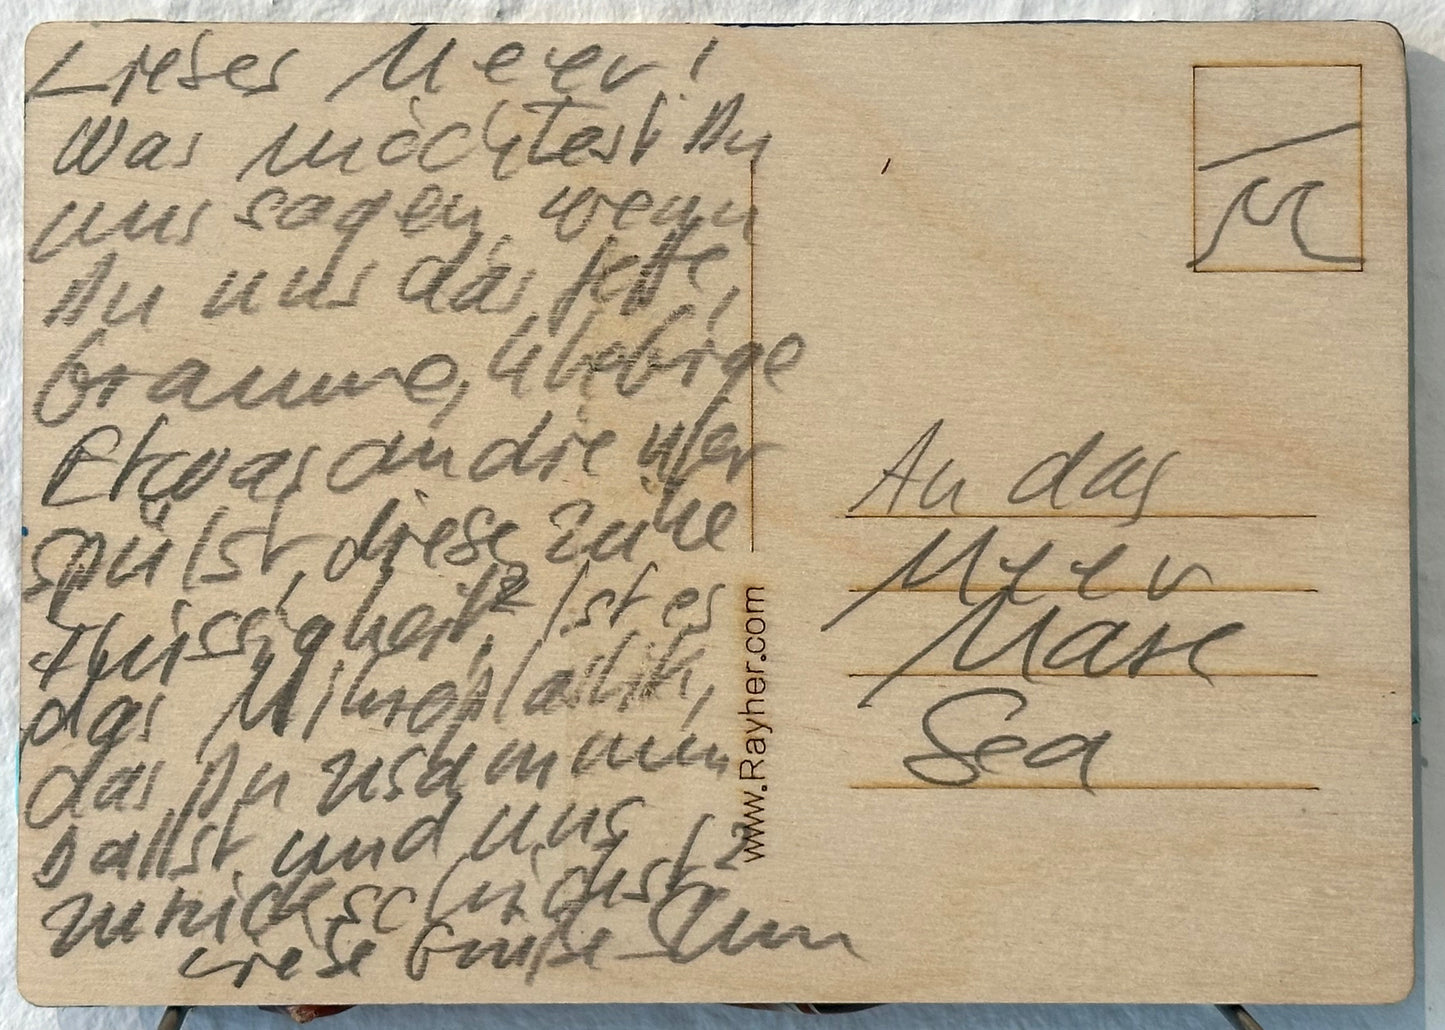 Liebes Meer!
Was möchtest Du
uns sagen, wenn
Du uns das fette,
braune, klebrige
Etwas an die Ufer
spülst, diese zähe
Flüssigkeit? Ist es
das Mikroplastik,
das Du zusammen
ballst und uns
zurückschickst?
Liebe Grüße
www.Rayher.com
An das
Meer
Mare
Sea